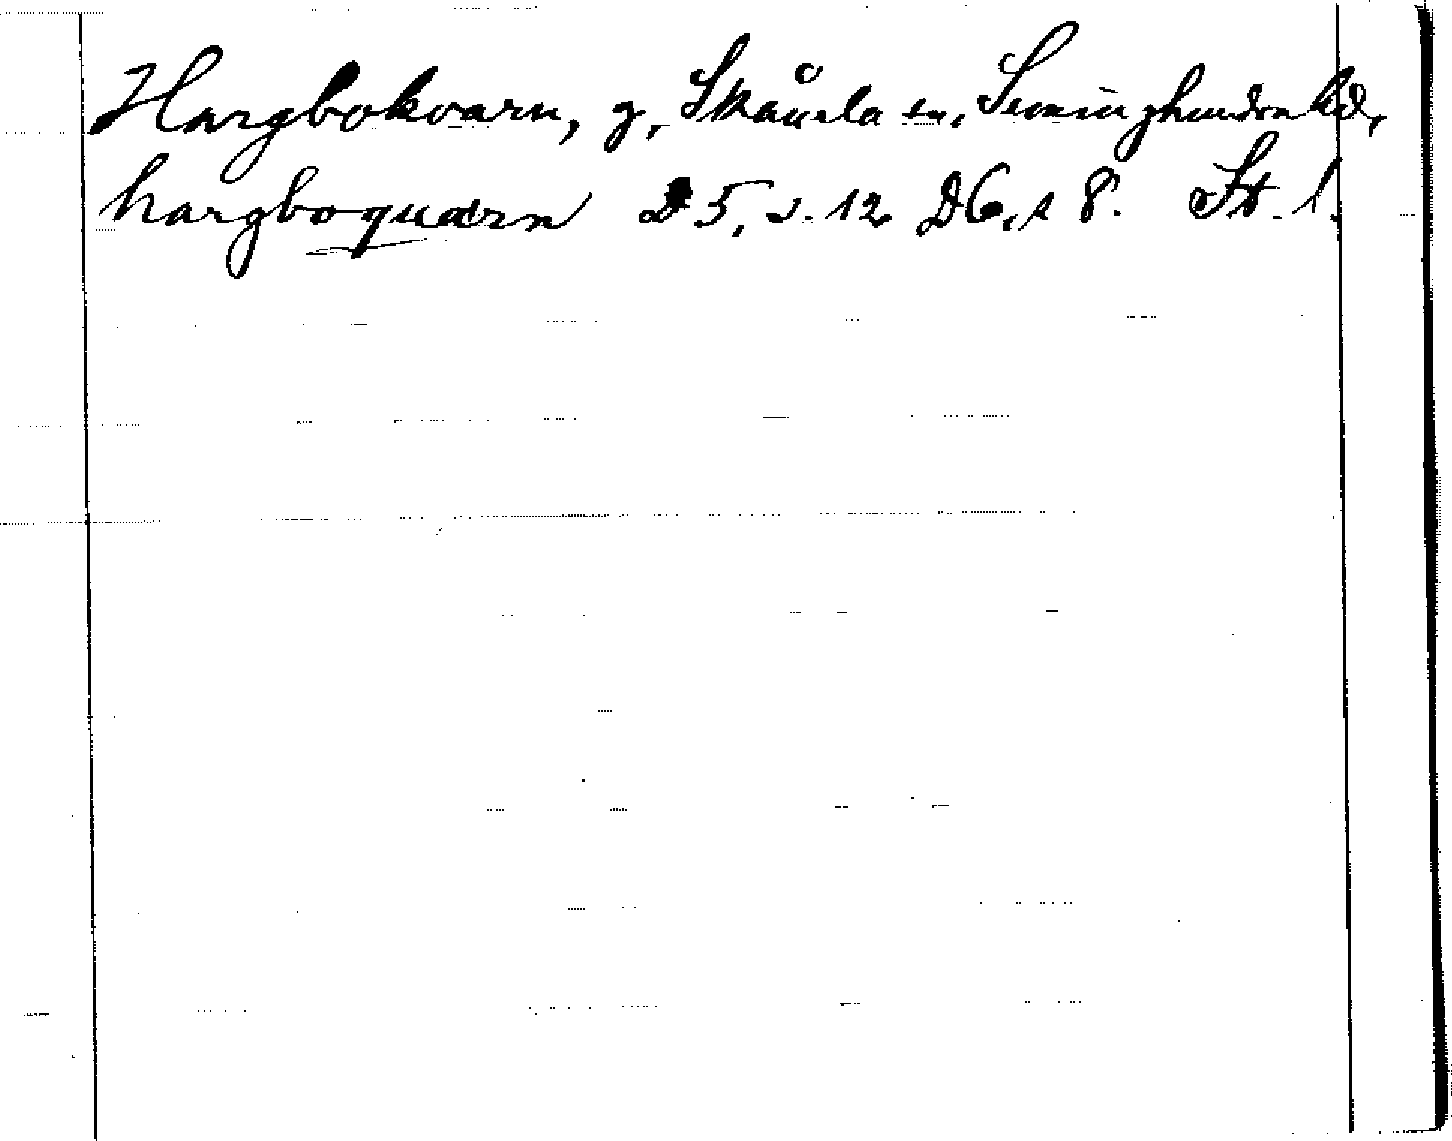 Hargbokvarn, g, Skånela sn, Seminghundra hd,
hargboquærn D 5, s. 12 D6, s 8. St. l.